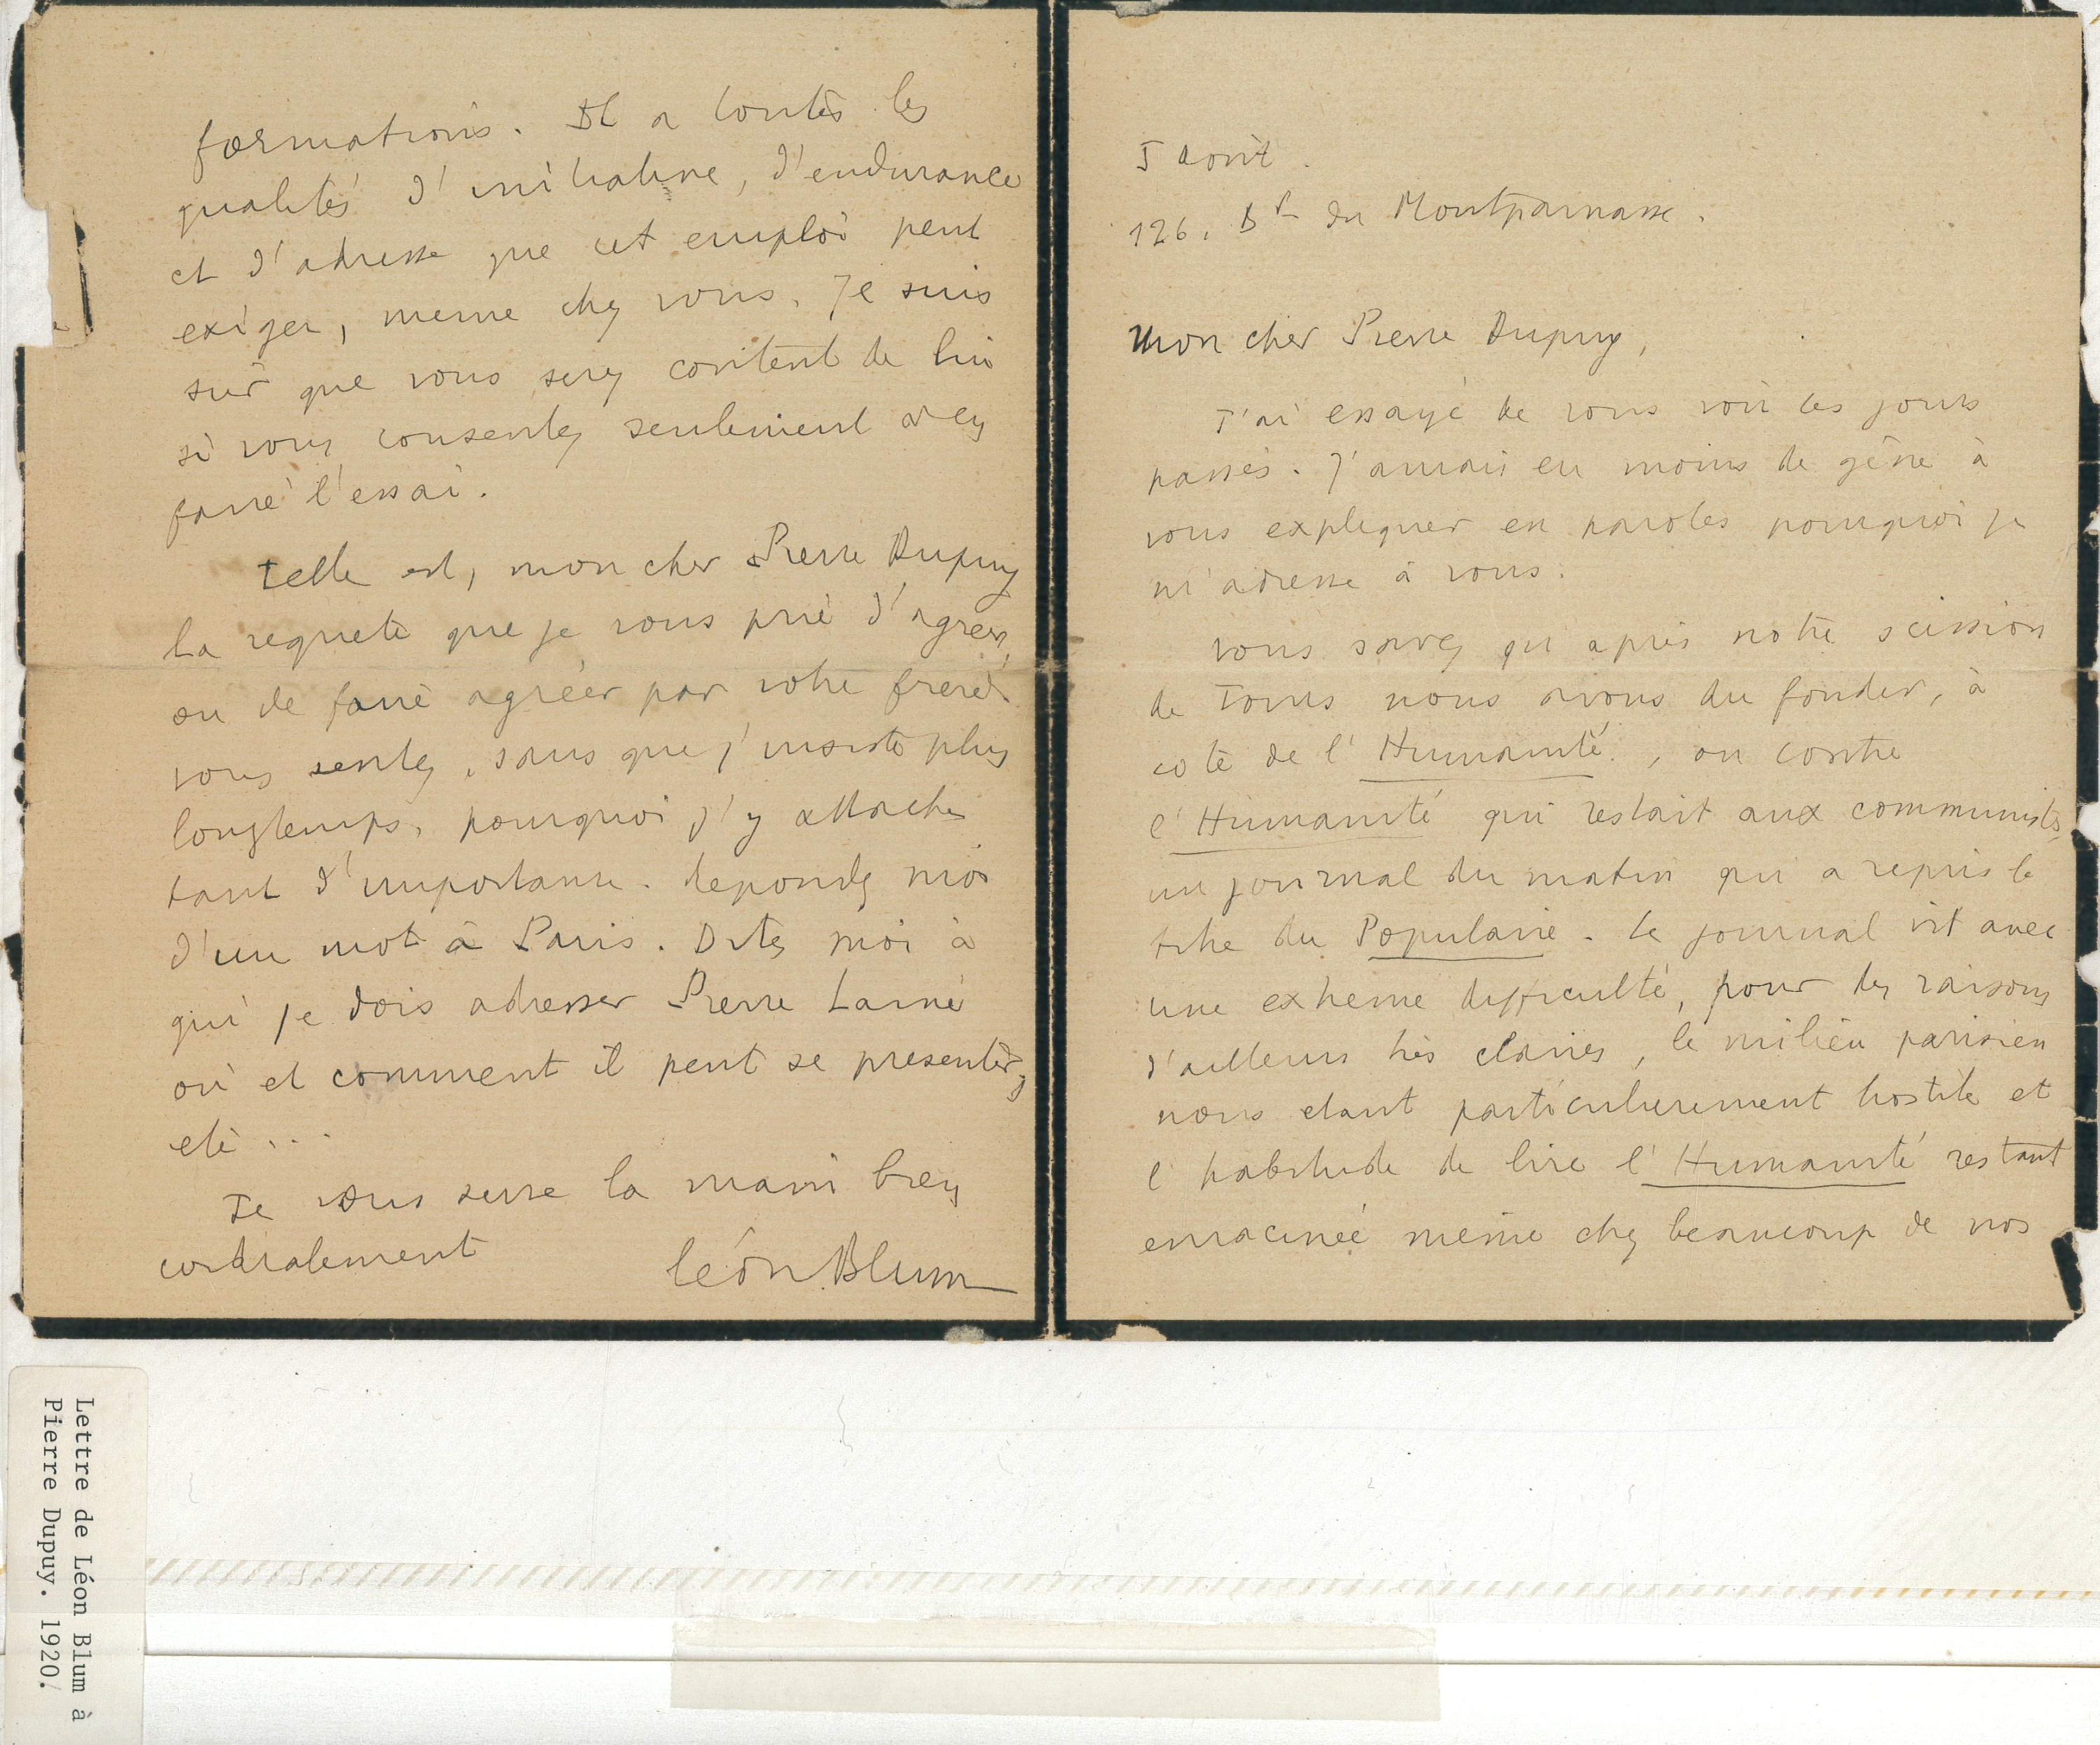 5 Août.
126, Bd du Montparnasse.
Mon cher Pierre Dupuy,
J'ai essayé de vous voir ces jours
passés. J'aurais eu moins de gêne à
vous expliquer en paroles pourquoi je
m'adresse à vous.
Vous savez qu'après notre scission
de Tours nous avons du fonder, à
coté de l'Humanité, ou contre
l'Humanité qui restait aux communistes,
un journal du matin qui a repris le
titre du Populaire. Le journal vit avec
une extreme difficulté, pour des raisons
d'ailleurs très claires, le milieu parisien
nous etant particulierement hostile et
l'habitude de lire l'Humanité restant
enracinée même chez beaucoup de nos
formations. Il a toutes les
qualités d'initiative, d'endurance
et d'adresse que cet emploi peut
exiger, meme chez vous. Je suis
sûr que vous serez content de lui
si vous consentez seulement à en
faire l'essai.
Telle est, mon cher Pierre Dupuy
la requete que je vous prie d'agréer,
ou de faire agréer par votre frère.
Vous sentez, sans que j'insiste plus
longtemps, pourquoi j'y attache
tant d'importance. Repondez moi
d'un mot à Paris. Dites moi à
qui je dois adresser Pierre Lainé
où et comment il peut se presenter,
etc ...
Je vous serre la main bien
cordialement
Léon Blum
Lettre de Léon Blum à
Pierre Dupuy. 1920.